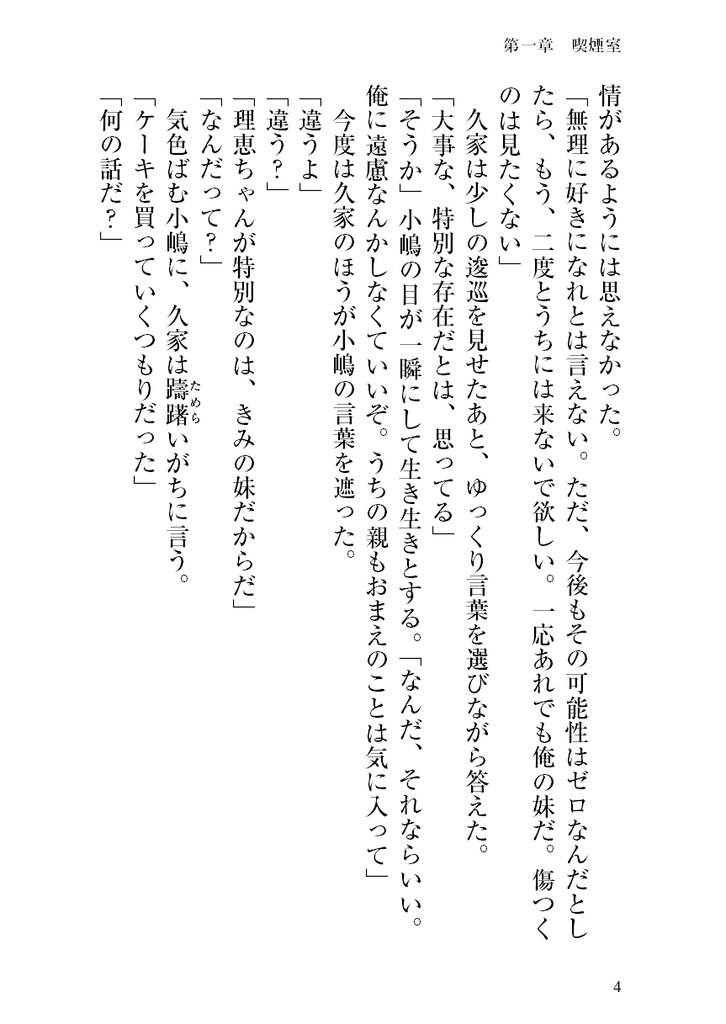 第一章　喫煙室
情があるようには思えなかった。
「無理に好きになれとは言えない。ただ、今後もその可能性はゼロなんだとし
たら、もう、二度とうちには来ないで欲しい。一応あれでも俺の妹だ。傷つく
のは見たくない」
　久家は少しの逡巡を見せたあと、ゆっくり言葉を選びながら答えた。
「大事な、特別な存在だとは、思ってる」
「そうか」小嶋の目が一瞬にして生き生きとする。「なんだ、それならいい。
俺に遠慮なんかしなくていいぞ。うちの親もおまえのことは気に入って」
　今度は久家のほうが小嶋の言葉を遮った。
「違うよ」
「違う？」
「理恵ちゃんが特別なのは、きみの妹だからだ」
「なんだって？」
　気色ばむ小嶋に、久家は躊躇いがちに言う。
ためら
「ケーキを買っていくつもりだった」
「何の話だ？」
4